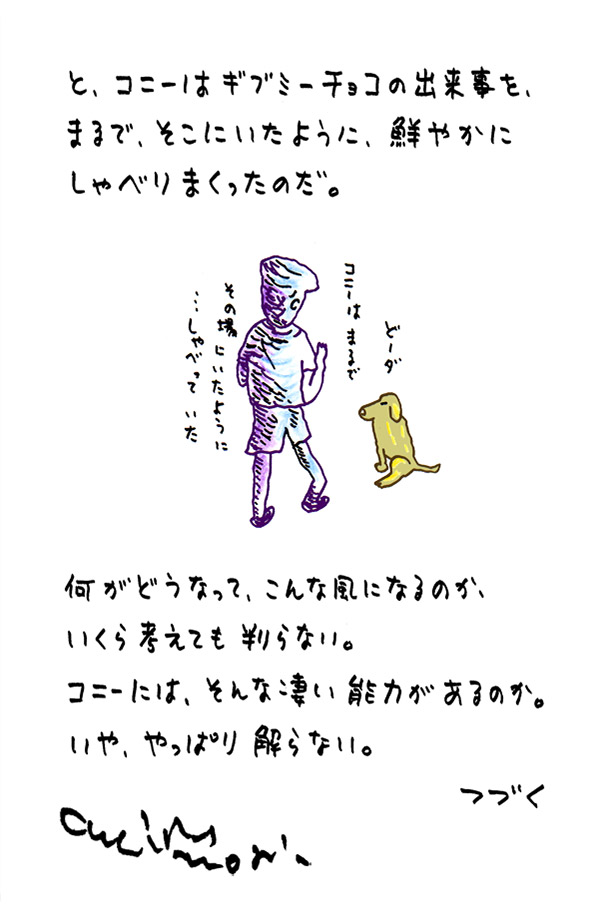 と、コニーはギブミーチョコの出来事を、
まるで、そこにいたように、鮮やかに
しゃべりまくったのだ。
コニーはまるで
その場にいたように
…しゃべっていた
どーダ
何がどうなって、こんな風になるのか、
いくら考えても判らない。
コニーには、そんな凄い能力があるのか。
いや、やっぱり解らない。
つづく